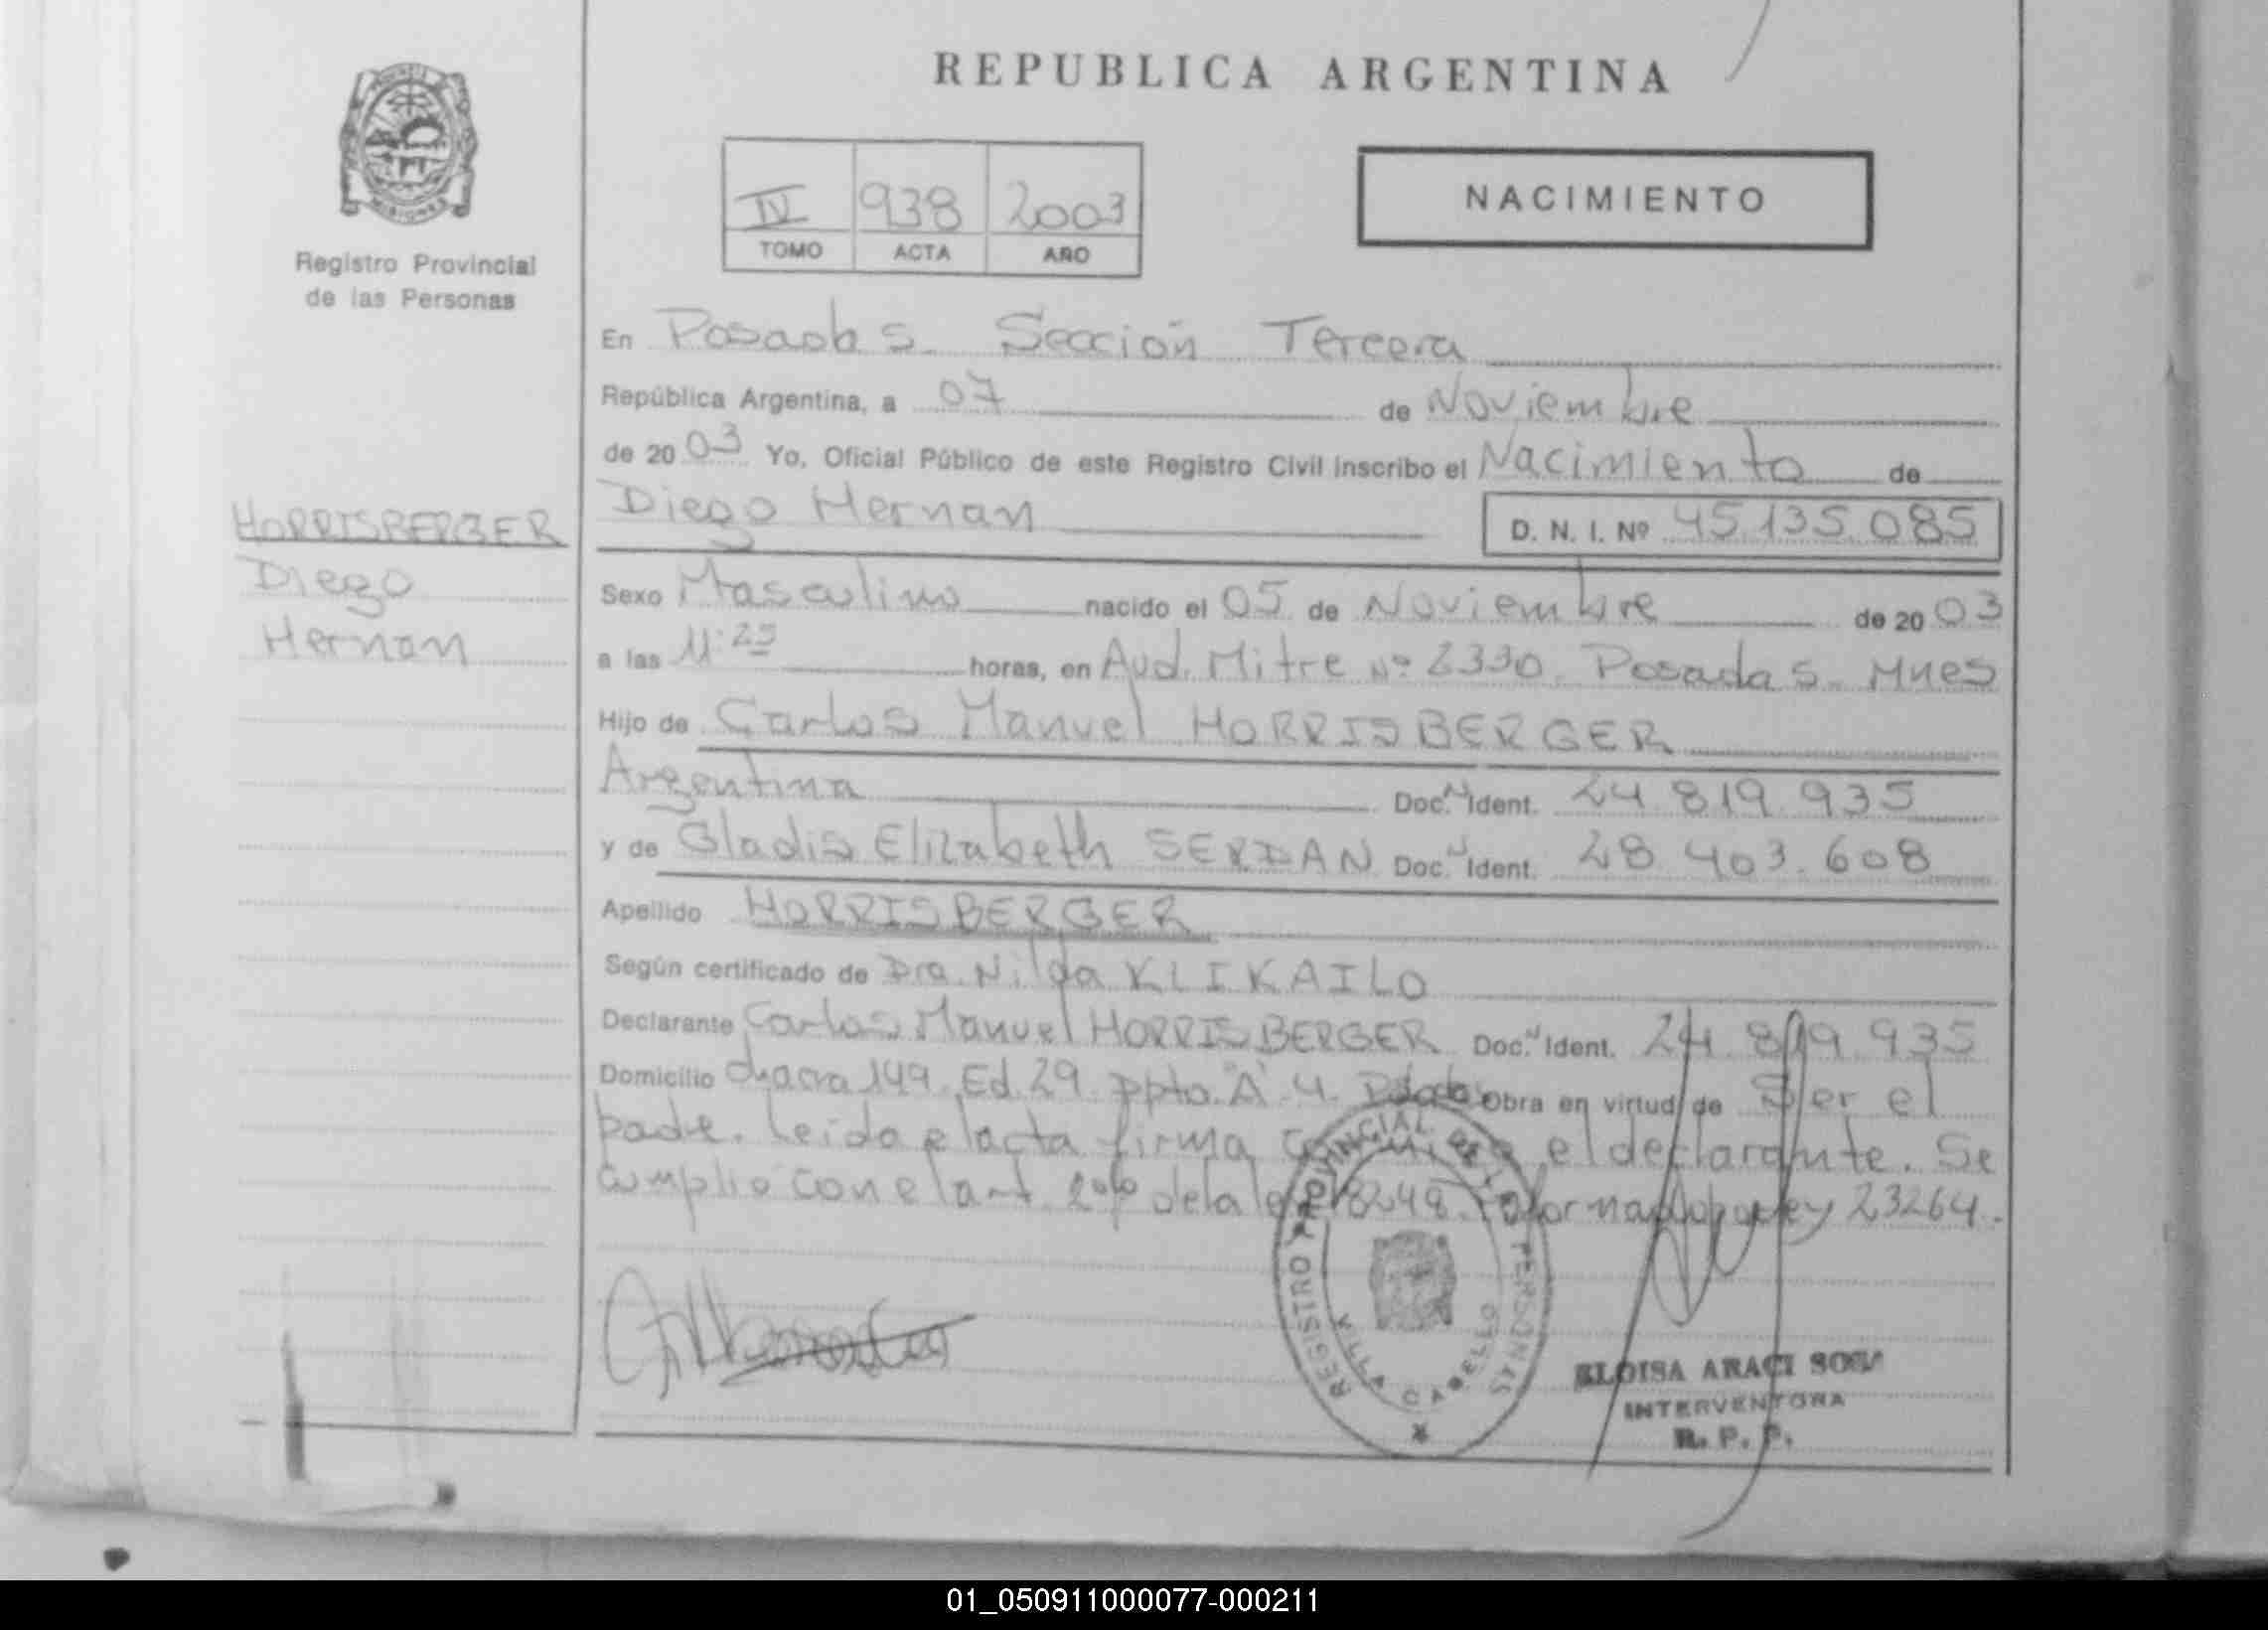 REPUBLICA ARGENTINA
MISIONES
Registro Provincial
de las Personas
IV 938 2003
TOMO ACTA AÑO
NACIMIENTO
En Posadas. Sección Tercera
República Argentina, a 07 de Noviembre
de 2003 Yo, Oficial Público de este Registro Civil inscribo el Nacimiento de
Diego Hernan D. N. I. Nº 45.135.085
HORRISBERGER
Diego
Hernan
Sexo Masculino nacido el 05 de Noviembre de 2003
a las 11:25 horas, en Avd. Mitre Nº 2330. Posadas. Mnes
Hijo de Carlos Manuel HORRISBERGER
Argentina Doc. N Ident. 24.819.935
y de Gladis Elizabeth SERDAN Doc. N Ident. 28.403.608
Apellido HORRISBERGER
Según certificado de Dra. Nilda KLIKAILO
Declarante Carlos Manuel HORRISBERGER Doc. N Ident. 24.819.935
Domicilio chacra 149. Ed. 29. Dpto. "A" 4. Obra en virtud de Ser el
padre. Leida el acta firma el declarante. Se
cumplio con el art. de la ley 18248. reformado por ley 23264.
REGISTRO PROVINCIAL DE LAS PERSONAS
VILLA CABELLO
ELOISA ARACI SOSA
INTERVENTORA
R. P. P.
01_050911000077-000211